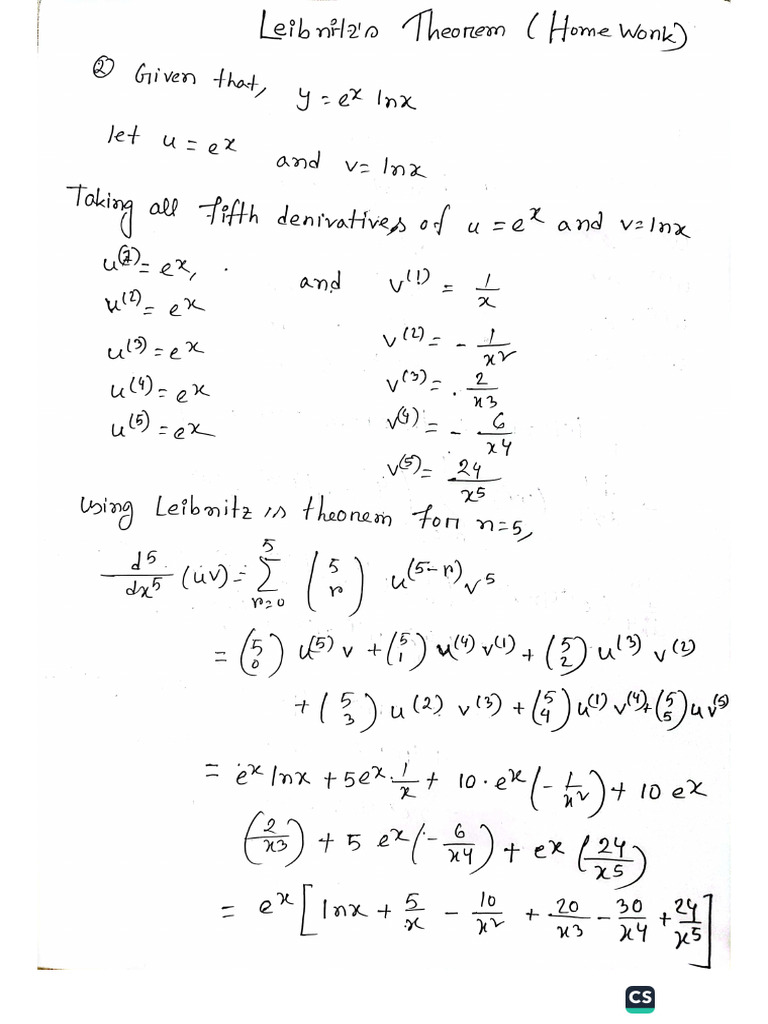 Leibnitz's Theorem (Home Work)
② Given that, y = e^x lnx
let u = e^x and v = lnx
Taking all fifth derivatives of u = e^x and v = lnx
u^(1) = e^x, and v^(1) = 1/x
u^(2) = e^x v^(2) = - 1/x^2
u^(3) = e^x v^(3) = 2/x^3
u^(4) = e^x v^(4) = - 6/x^4
u^(5) = e^x v^(5) = 24/x^5
Using Leibnitz is theorem for n=5,
d^5/dx^5 (uv) = 5 ∑ r=0 (5 r) u^(5-r) v^5
= (5 0) u^(5) v + (5 1) u^(4) v^(1) + (5 2) u^(3) v^(2)
+ (5 3) u^(2) v^(3) + (5 4) u^(1) v^(4) + (5 5) u v^(5)
= e^x lnx + 5e^x . 1/x + 10 . e^x (- 1/x^2) + 10 e^x
(2/x^3) + 5 e^x (- 6/x^4) + e^x (24/x^5)
= e^x [lnx + 5/x - 10/x^2 + 20/x^3 - 30/x^4 + 24/x^5]
CS